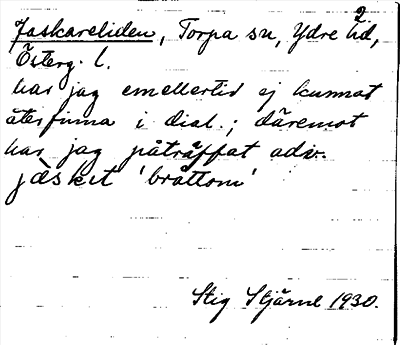 Jaskareliden, Torpa sn, Ydre hd,
Österg. l.
har jag emellertid ej kunnat
återfinna i dial.; däremot
har jag påträffat adv.
jäsket 'bråttom'
Stig Stjärne 1930.